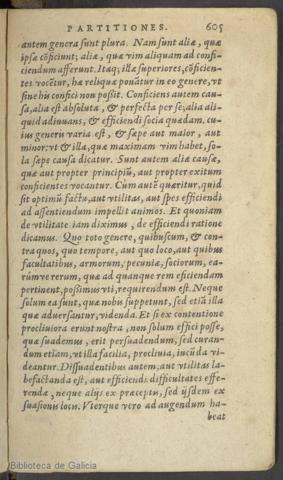 PARTITIONES. 605
autem genera sunt plura. Nam sunt aliæ, quæ
ipsæ cõficiunt; aliæ, quæ vim aliquam ad confi-
ciendum afferunt. Itaq; illæ superiores, cõficien-
tes vocẽtur, hæ reliquæ ponãtur in eo genere, vt
sine his confici non possit. Conficiens autem cau-
sa, alia est absoluta, & perfecta per se; alia ali-
quid adiuuans, & efficiendi socia quædam. cu-
ius generis varia est, & sæpe aut maior, aut
minor: vt & illa, quæ maximam vim habet, so-
la sæpe causa dicatur. Sunt autem aliæ causæ,
quæ aut propter principiũ, aut propter exitum
conficientes vocantur. Cum autẽ quæritur, quid
sit optimũ factu, aut vtilitas, aut spes efficiendi
ad assentiendum impellit animos. Et quoniam
de vtilitate iam diximus, de efficiendi ratione
dicamus. Quo toto genere, quibuscum, & con-
tra quos, quo tempore, aut quo loco, aut quibus
facultatibus, armorum, pecuniæ, sociorum, ea-
rúmve rerum, quæ ad quanque rem efficiendam
pertinent, possimus vti, requirendum est. Neque
solum ea sunt, quæ nobis suppetunt, sed etiã illa
quæ aduersantur, videnda. Et si ex contentione
procliuiora erunt nostra, non solum effici posse,
quæ suademus, erit persuadendum, sed curan-
dum etiam, vt illa facilia, procliuia, iucũda vi-
deantur. Dissuadentibus autem, aut vtilitas la-
befactanda est, aut efficiendi difficultates effe-
rendæ, neque alijs ex præceptis, sed ijsdem ex
suasionis locis. Vterque vero ad augendum ha-
beat
Biblioteca de Galicia